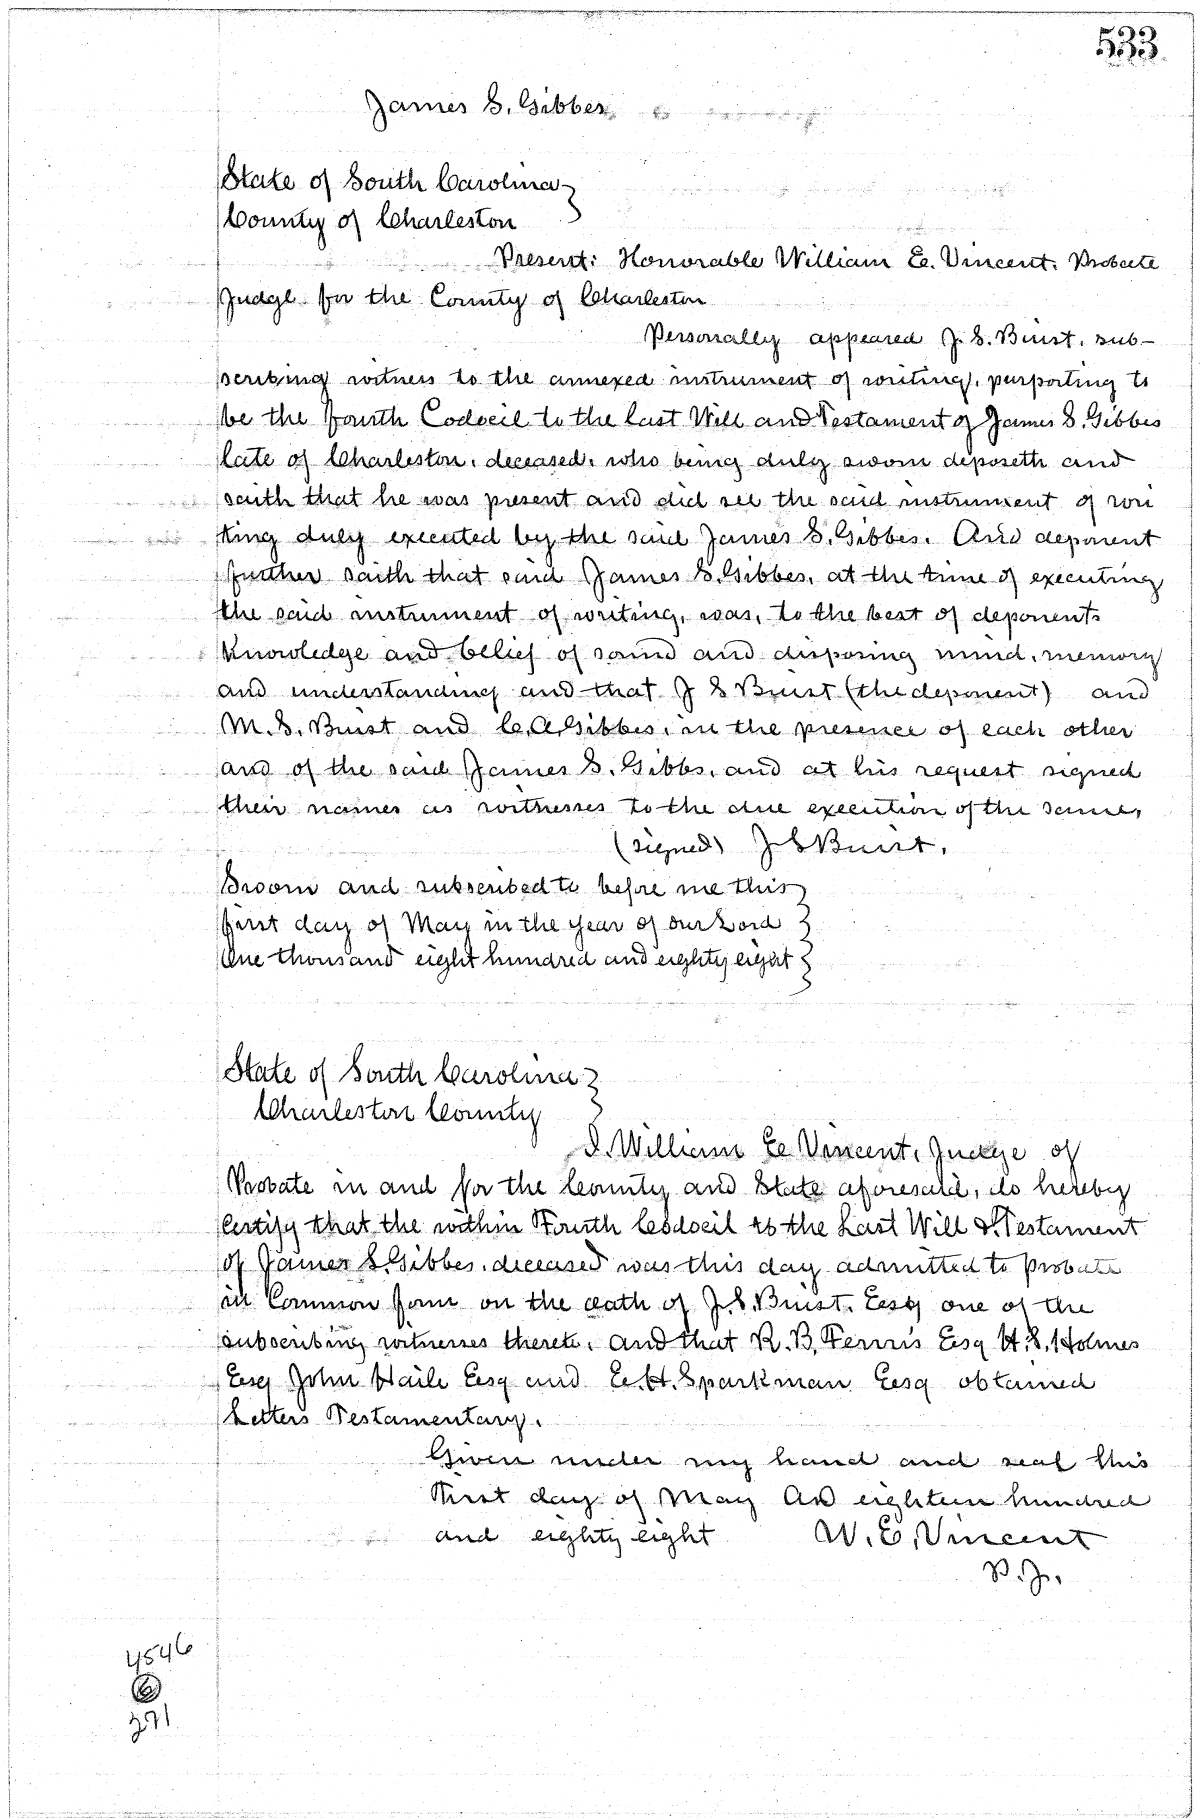 533
James S. Gibbes
State of South Carolina
County of Charleston
Present: Honorable William E. Vincent. Probate
Judge for the County of Charleston
Personally appeared J. S. Buist, sub-
scribing witness to the annexed instrument of writing, purporting to
be the fourth Codocil to the Last Will and Testament of James S. Gibbes
late of Charleston, deceased, who being duly sworn deposeth and
saith that he was present and did see the said instrument of wri
ting duly executed by the said James S. Gibbes. And deponent
further saith that said James S. Gibbes, at the time of executing
the said instrument of writing, was, to the best of deponents
knowledge and belief of sound and disposing mind, memory
and understanding and that J S Buist (the deponent) and
M. S. Buist and C. A. Gibbes, in the presence of each other
and of the said James S. Gibbs, and at his request signed
their names as witnesses to the due execution of the same,
(signed) J S Buist.
Sworn and subscribed to before me this
first day of May in the year of our Lord
One thousand eight hundred and eighty eight
State of South Carolina
Charleston County
I. William E Vincent, Judge of
Probate in and for the County and State aforesaid, do hereby
Certify that the within Fourth Codocil to the Last Will & Testament
of James S. Gibbes, deceased was this day admitted to Probate
in Common form on the oath of J. S. Buist. Esq one of the
subscribing witnesses thereto. and that R. B. Ferris Esq H. S. Holmes
Esq John Haile Esq and E. H. Sparkman Esq obtained
Letters Testamentary.
Given under my hand and seal this
First day of May AD eighteen hundred
and eighty eight W. E. Vincent
P. J.
4546
6
371